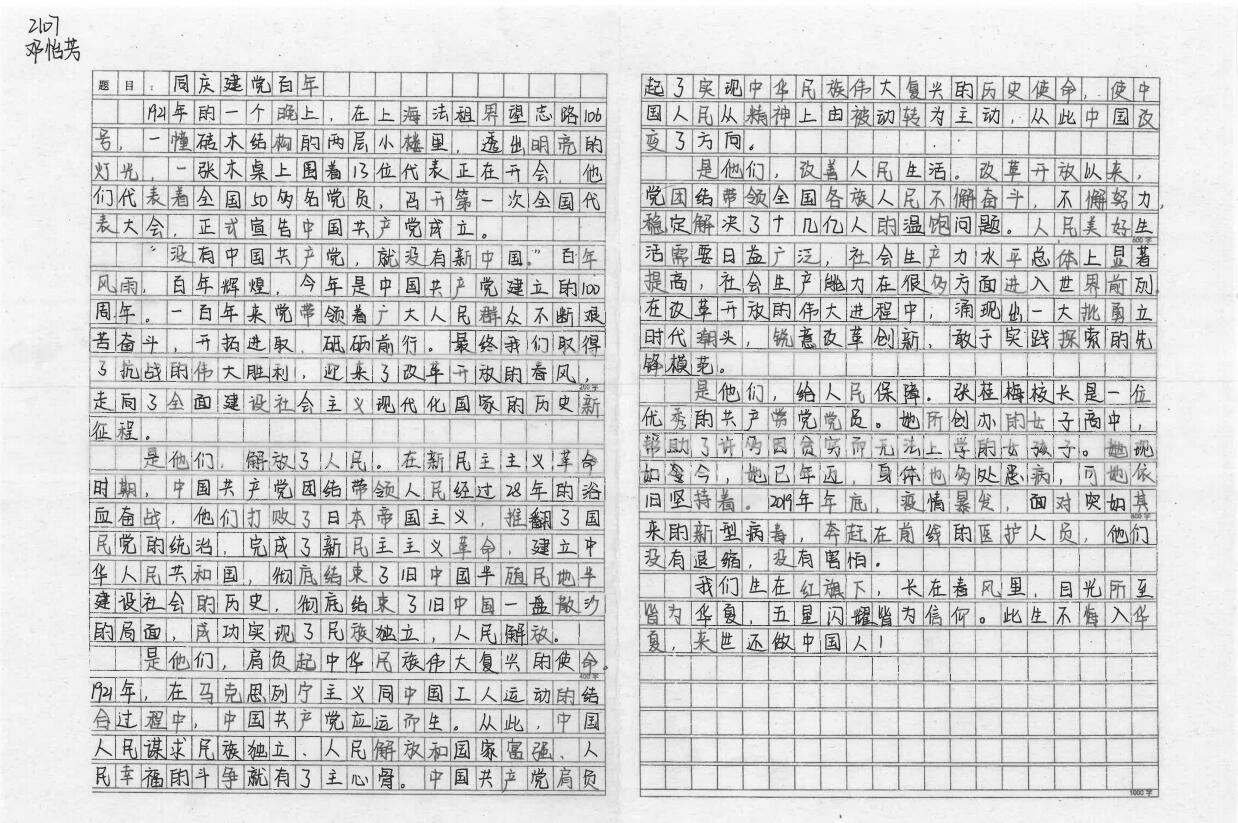 2107
邓怡芳
题目：同庆建党百年
1921年的一个晚上，在上海法租界望志路106
号，一幢砖木结构的两层小楼里，透出明亮的
灯光，一张木桌上围着13位代表正在开会，他
们代表着全国50多名党员，召开第一次全国代
表大会，正式宣告中国共产党成立。
“没有中国共产党，就没有新中国。”百年
风雨，百年辉煌，今年是中国共产党建立的100
周年。一百年来党带领着广大人民群众不断艰
苦奋斗，开拓进取，砥砺前行。最终我们取得
了抗战的伟大胜利，迎来了改革开放的春风，
200字
走向了全面建设社会主义现代化国家的历史新
征程。
是他们，解放了人民。在新民主主义革命
时期，中国共产党团结带领人民经过28年的浴
血奋战，他们打败了日本帝国主义，推翻了国
民党的统治，完成了新民主主义革命，建立中
华人民共和国，彻底结束了旧中国半殖民地半
建设社会的历史，彻底结束了旧中国一盘散沙
的局面，成功实现了民族独立，人民解放。
是他们，肩负起中华民族伟大复兴的使命。
400字
1921年，在马克思列宁主义同中国工人运动的结
合过程中，中国共产党应运而生。从此，中国
人民谋求民族独立、人民解放和国家富强、人
民幸福的斗争就有了主心骨。中国共产党肩负
起了实现中华民族伟大复兴的历史使命，使中
国人民从精神上由被动转为主动，从此中国改
变了方向。
是他们，改善人民生活。改革开放以来，
党团结带领全国各族人民不懈奋斗，不懈努力，
稳定解决了十几亿人的温饱问题。人民美好生
600字
活需要日益广泛，社会生产力水平总体上显著
提高，社会生产能力在很多方面进入世界前列。
在改革开放的伟大进程中，涌现出一大批勇立
时代潮头，锐意改革创新，敢于实践探索的先
锋模范。
是他们，给人民保障。张桂梅校长是一位
优秀的共产党党员。她所创办的女子高中，
帮助了许多因贫穷而无法上学的女孩子。她现
如今，她已年迈，身体也多处患病，可她依
旧坚持着。2019年年底，疫情暴发，面对突如其
800字
来的新型病毒，奔赴在前线的医护人员，他们
没有退缩，没有害怕。
我们生在红旗下，长在春风里，目光所至
皆为华夏，五星闪耀皆为信仰。此生不悔入华
夏，来世还做中国人！
1000字